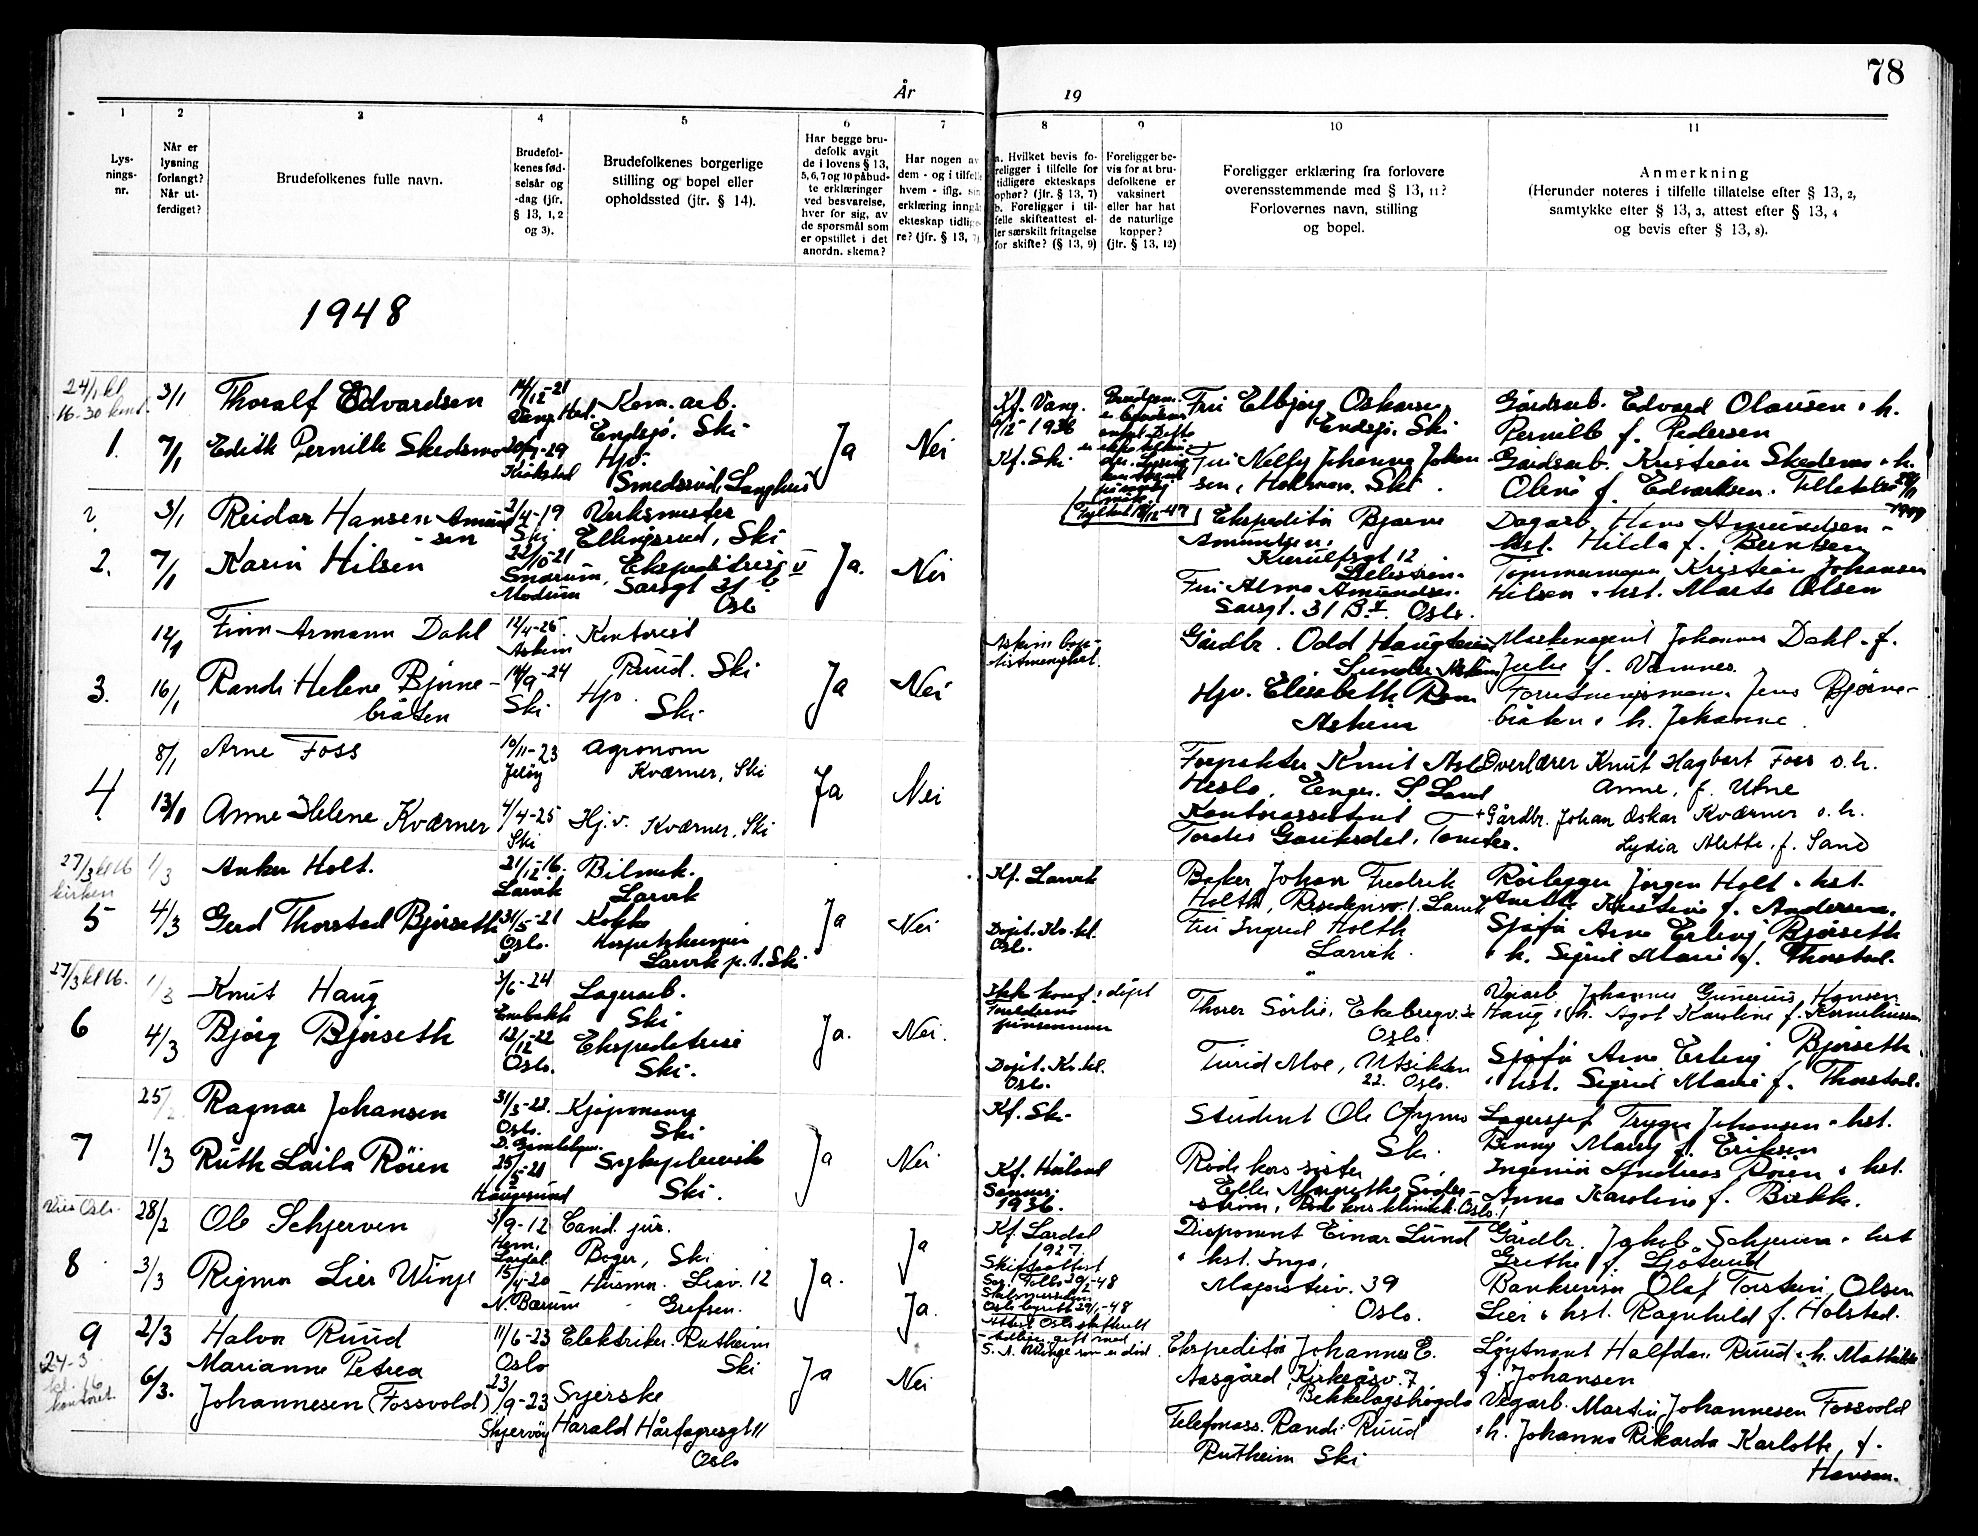 78
År
19
1
Lys-
nings-
nr.
2
Når er
lysning
forlangt?
Når ut-
ferdiget?
3
Brudefolkenes fulle navn.
4
Brudefol-
kenes fød-
selsår og
-dag (jfr.
§ 13, 1, 2
og 3).
5
Brudefolkenes borgerlige
stilling og bopel eller
opholdssted (jfr. § 14).
6
Har begge bru-
defolk avgit
de i lovens § 13,
5, 6, 7 og 10 påbud-
te erklæringer
ved besvarelse,
hver for sig, av
de spørsmål som
er opstillet i det
anordn. skema?
7
Har nogen av
dem - og i tilfelle
hvem - iflg.
erklæring inngå
ekteskap tidlige
re? (jfr. § 13, 7)
8
a. Hvilket bevis fo-
religger i tilfelle for
tidligere ekteskaps
ophør? (jfr. § 13, 7)
b. Foreligger i til-
felle skifteattest el-
ler særskilt fritagelse
for skifte? (§ 13, 9)
9
Foreligger be-
vis for at bru-
defolkene er
vaksinert
eller har hat
de naturlige
kopper?
(jfr. § 13, 12)
10
Foreligger erklæring fra forlovere
overensstemmende med § 13, 11?
Forlovernes navn, stilling
og bopel.
11
Anmerkning
(Herunder noteres i tilfelle tillatelse efter § 13, 2,
samtykke efter § 13, 3, attest efter § 13, 4
og bevis efter § 13, 8).
1948
24/1 kl
16-30
1.
3/1
Thoralf Edvardsen
14/12-21
Vang, Hed.
Kem. arb.
Endsjø, Ski
7/1
Edith Pernille Skedsmo
Kråkstad
Hjv.
Smedsrud, Langhus
Ja
Nei
Kf. Vang.
1936
Kf. Ski
Fru Elbjørg Oskarsen
Endsjø, Ski
Fru Nelfy Johanna Johan-
sen, Holmen, Ski.
Gårdsarb. Edvard Olausen o. h.
Pernille f. Pedersen
Gårdsarb. Kristian Skedsmo o. h.
f. Edvardsen.
2.
3/1
Reidar Hansen Amund-
sen
2/4-19
Ski
Verksmester
Ellingsrud, Ski
7/1
Karin Hilsen
22/10-21
Snarum,
Modum
Ekspeditrise
Sarsgt 31 b
Oslo
Ja.
Nei
Ekspeditør Bjarne
Amundsen,
Kierulfsgt 12
Lillestrøm.
Fru Alma Amundsen.
Sarsgt. 31 B Oslo.
Dagarb. Hans Amundsen -
hst. Hilda f. Berntsen
Tømmermann Kristian Johansen
Hilsen o. hst. Marta Olsen
3.
12/1
Finn Armann Dahl
12/4-25
Askim
Kontorist
Ruud. Ski
16/1
Randi Helene Bjørne-
bråten
14/9-24
Ski
Hjv.
Ski
Ja
Nei
Askim bap-
tistmenighet.
Gårdbr. Odd Haugstein
Askim
Hjv. Elisabeth Rom
Askim
Maskinagent Johannes Dahl o. f.
Julie f. Vamnes
Forretningsmann Jens Bjørne-
bråten o. h. Johanne.
4.
8/1
Arne Foss
10/11-23
Jeløy
Agronom
Kværner, Ski
13/1
Anne Helene Kværner
4/4-25
Ski
Hj.v. Kværner, Ski
Ja
Nei
Forpakter Knut Asle
Heslo, Enger. S Land
Kontorassistent
Tordis Gaukerdal, Tomter.
Overlærer Knut Hagbart Foss o. h.
Anne, f. Utne
Gårdbr. Johan Oskar Kværner o. h.
Lydia Alette, f. Sand
27/3 kl 16
kirken
5
1/3
Anker Holt.
21/12-16.
Larvik
Bilmek.
Larvik
4/3
Gerd Thorstad Bjørseth
31/5-21
Oslo.
Kokke
Larvik p. t. Ski
Ja
Nei
Kf. Larvik
Døpt. Ka. kl.
Oslo.
Baker Johan Fredrik
Holth, Larvik
Fru Ingrid Holth
Larvik.
Rørlegger Jørgen Holt o. hst.
Kristine f. Andersen.
Sjåfør Arne Erling Bjørseth
o. h. Sigrid Marie f. Thorstad.
27/3 kl 16.
6
1/3
Knut Haug
3/6-24
Enebakk
Lagerarb.
Ski
4/3
Bjørg Bjørseth
12/12-22
Oslo.
Ekspeditrise
Ski.
Ja.
Nei.
Ikke konf. døpt
Døpt. Ka. kl.
Oslo.
Thorer Sørlie, Ekebergv.
Oslo.
Turid Moe, Utsikten
22. Oslo.
Veiarb. Johannes Gunerius Hansen
Haug o. h. Agot Karoline f. Korneliussen
Sjåfør Arne Erling Bjørseth
o. hst. Sigrid Marie f. Thorstad.
7
25/2
Ragnar Johansen
31/3-23.
Oslo.
Kjøpmann
Ski
1/3
Ruth Laila Röien
25/5-21
Haugesund
Sykepleierske
Ski.
Ja
Nei
Kf. Ski
1936.
Student Ole
Ski.
Røde kors søster
Elle Margrethe Søder-
strøm, Røde kors klinikk. Oslo.
Lagersjef Trygve Johansen o. hst.
Benny Mary f. Eriksen
Ingeniør Andreas Röien o. hst.
Anna Karoline f. Bække.
Vies Oslo.
8
28/2
Ole Schjerven
3/9-12
Hem.
Lardal.
Cand. jur.
Boger, Ski
3/3
Rigmor Lier Winge
15/4-20
N. Bærum
Husmor. Liav. 12
Grefsen.
Ja.
Ja
Ja.
Kf. Lardal
1927.
Skifteattest
Sor. Follo 29/1-48
Oslo byrett 29/1-48
Attest Oslo skifterett
gift med
S. A. Winge som er død.
Disponent Einar Lund
o. hst. Inga,
Majorstuv. 39
Oslo.
Gårdbr. Jakob Schjerven o. hst
Grethe f. Ljøterud
Bankrevisor Olaf Torstein Olsen
Lier o. hst. Ragnhild f. Holstad.
9
24-3
kl. 16
kontoret.
2/3
Halvor Ruud
11/6-23
Oslo
Elektriker. Rutheim
Ski
6/3.
Marianne Petrea
Johannesen (Fossvold)
23/9-23
Skjervøy
Syerske
Harald Hårfagresgt 11
Oslo
Ja
Nei
Ekspeditør Johannes E.
Aasgård, Kirkeåsv. 7,
Bekkelagshøgda
Telefonass. Randi Ruud
Rutheim Ski
Løytnant Halfdan Ruud o. h. Mathilde
f. Johansen
Vegarb. Martin Johannesen Fossvold
o. h. Johanna Rikarda Karlotte, f.
Hansen.